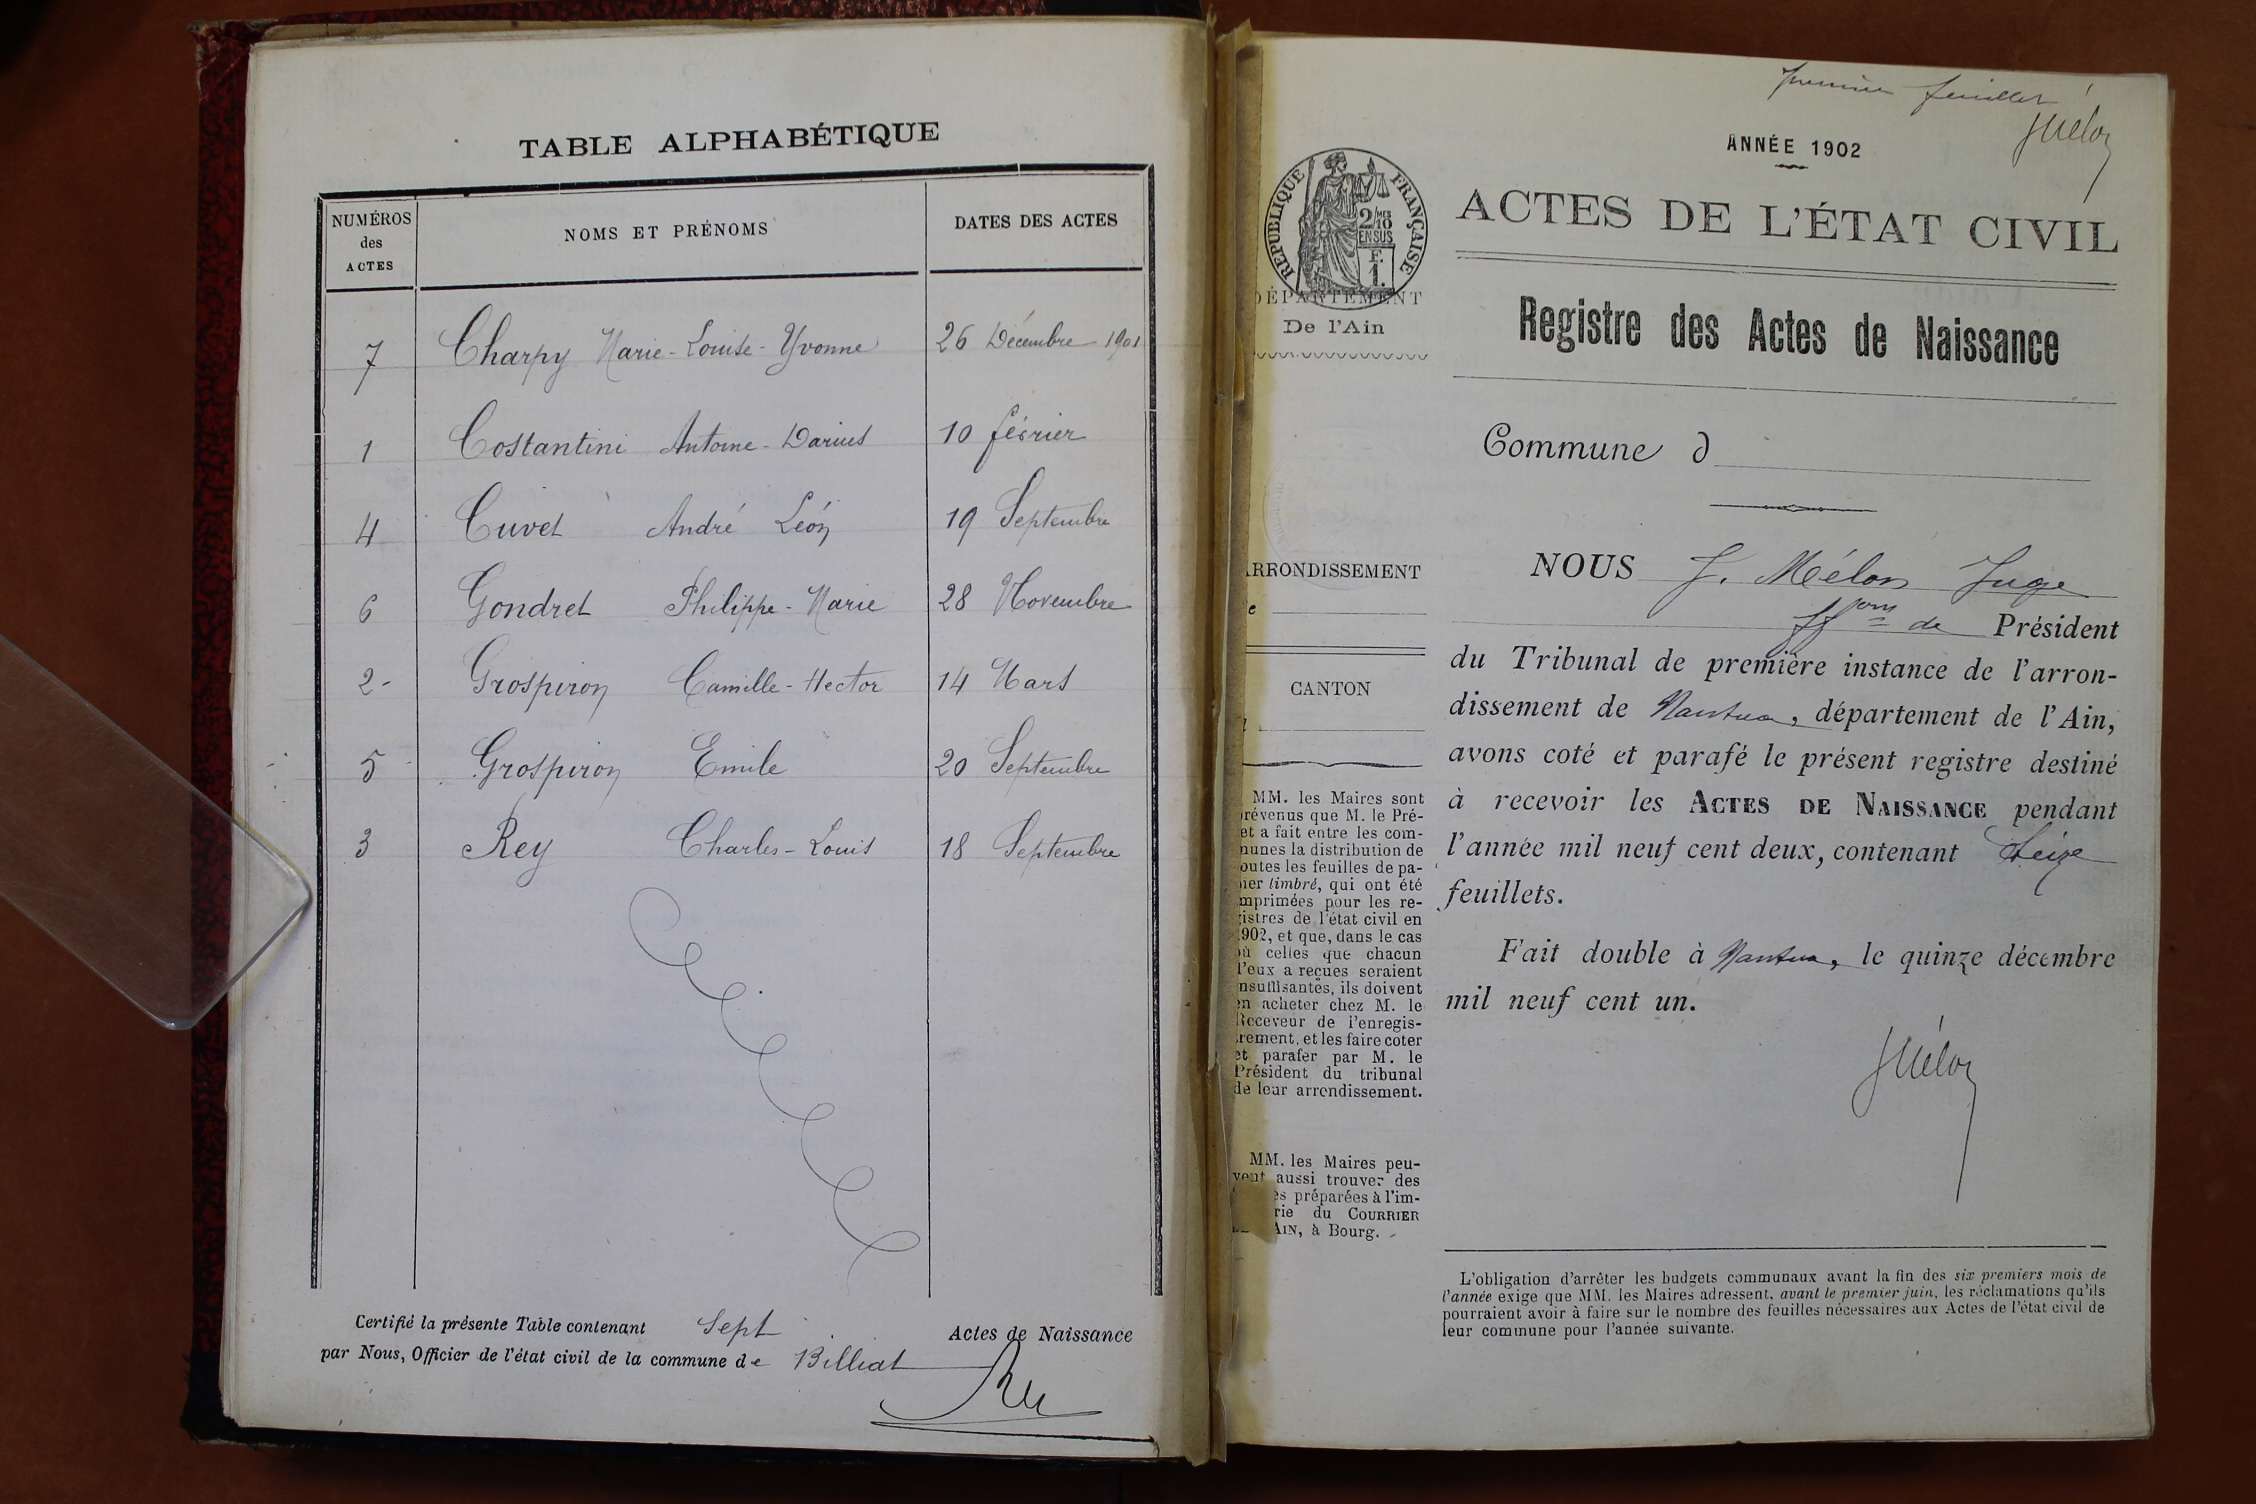 TABLE ALPHABÉTIQUE
NUMÉROS des ACTES
NOMS ET PRÉNOMS
DATES DES ACTES
7 Charpy Marie-Louise-Yvonne 26 Décembre 1901
1 Costantini Antoine-Darius 10 février
4 Cuvet André León 19 Septembre
6 Gondret Philippe-Marie 28 Novembre
2 - Grospiron Camille-Hector 14 Mars
5 Grospiron Emile 20 Septembre
3 Rey Charles-Louis 18 Septembre
Certifié la présente Table contenant Sept Actes de Naissance
par Nous, Officier de l'état civil de la commune de Billiat
premier feuillet
JMélon
ANNÉE 1902
RÉPUBLIQUE FRANÇAISE
2/MES
10
EN SUS
F.
1.
DÉPARTEMENT
De l'Ain
ARRONDISSEMENT
e
CANTON
MM. les Maires sont
prévenus que M. le Pré-
et a fait entre les com-
nunes la distribution de
outes les feuilles de pa-
ier timbré, qui ont été
mprimées pour les re-
istres de l'état civil en
902, et que, dans le cas
ù celles que chacun
d'eux a reçues seraient
nsuffisantes, ils doivent
en acheter chez M. le
Receveur de l'enregis-
rement, et les faire coter
et parafer par M. le
Président du tribunal
de leur arrondissement.
MM. les Maires peu-
vent aussi trouver des
es préparées à l'im-
rie du COURRIER
AIN, à Bourg.
ACTES DE L'ÉTAT CIVIL
Registre des Actes de Naissance
Commune d
NOUS J. Mélon Juge
ffons de Président
du Tribunal de première instance de l'arron-
dissement de Nantua, département de l'Ain,
avons coté et parafé le présent registre destiné
à recevoir les ACTES DE NAISSANCE pendant
l'année mil neuf cent deux, contenant Seize
feuillets.
Fait double à Nantua, le quinze décembre
mil neuf cent un.
JMélon
L'obligation d'arrêter les budgets communaux avant la fin des six premiers mois de
l'année exige que MM. les Maires adressent, avant le premier juin, les réclamations qu'ils
pourraient avoir à faire sur le nombre des feuilles nécessaires aux Actes de l'état civil de
leur commune pour l'année suivante.